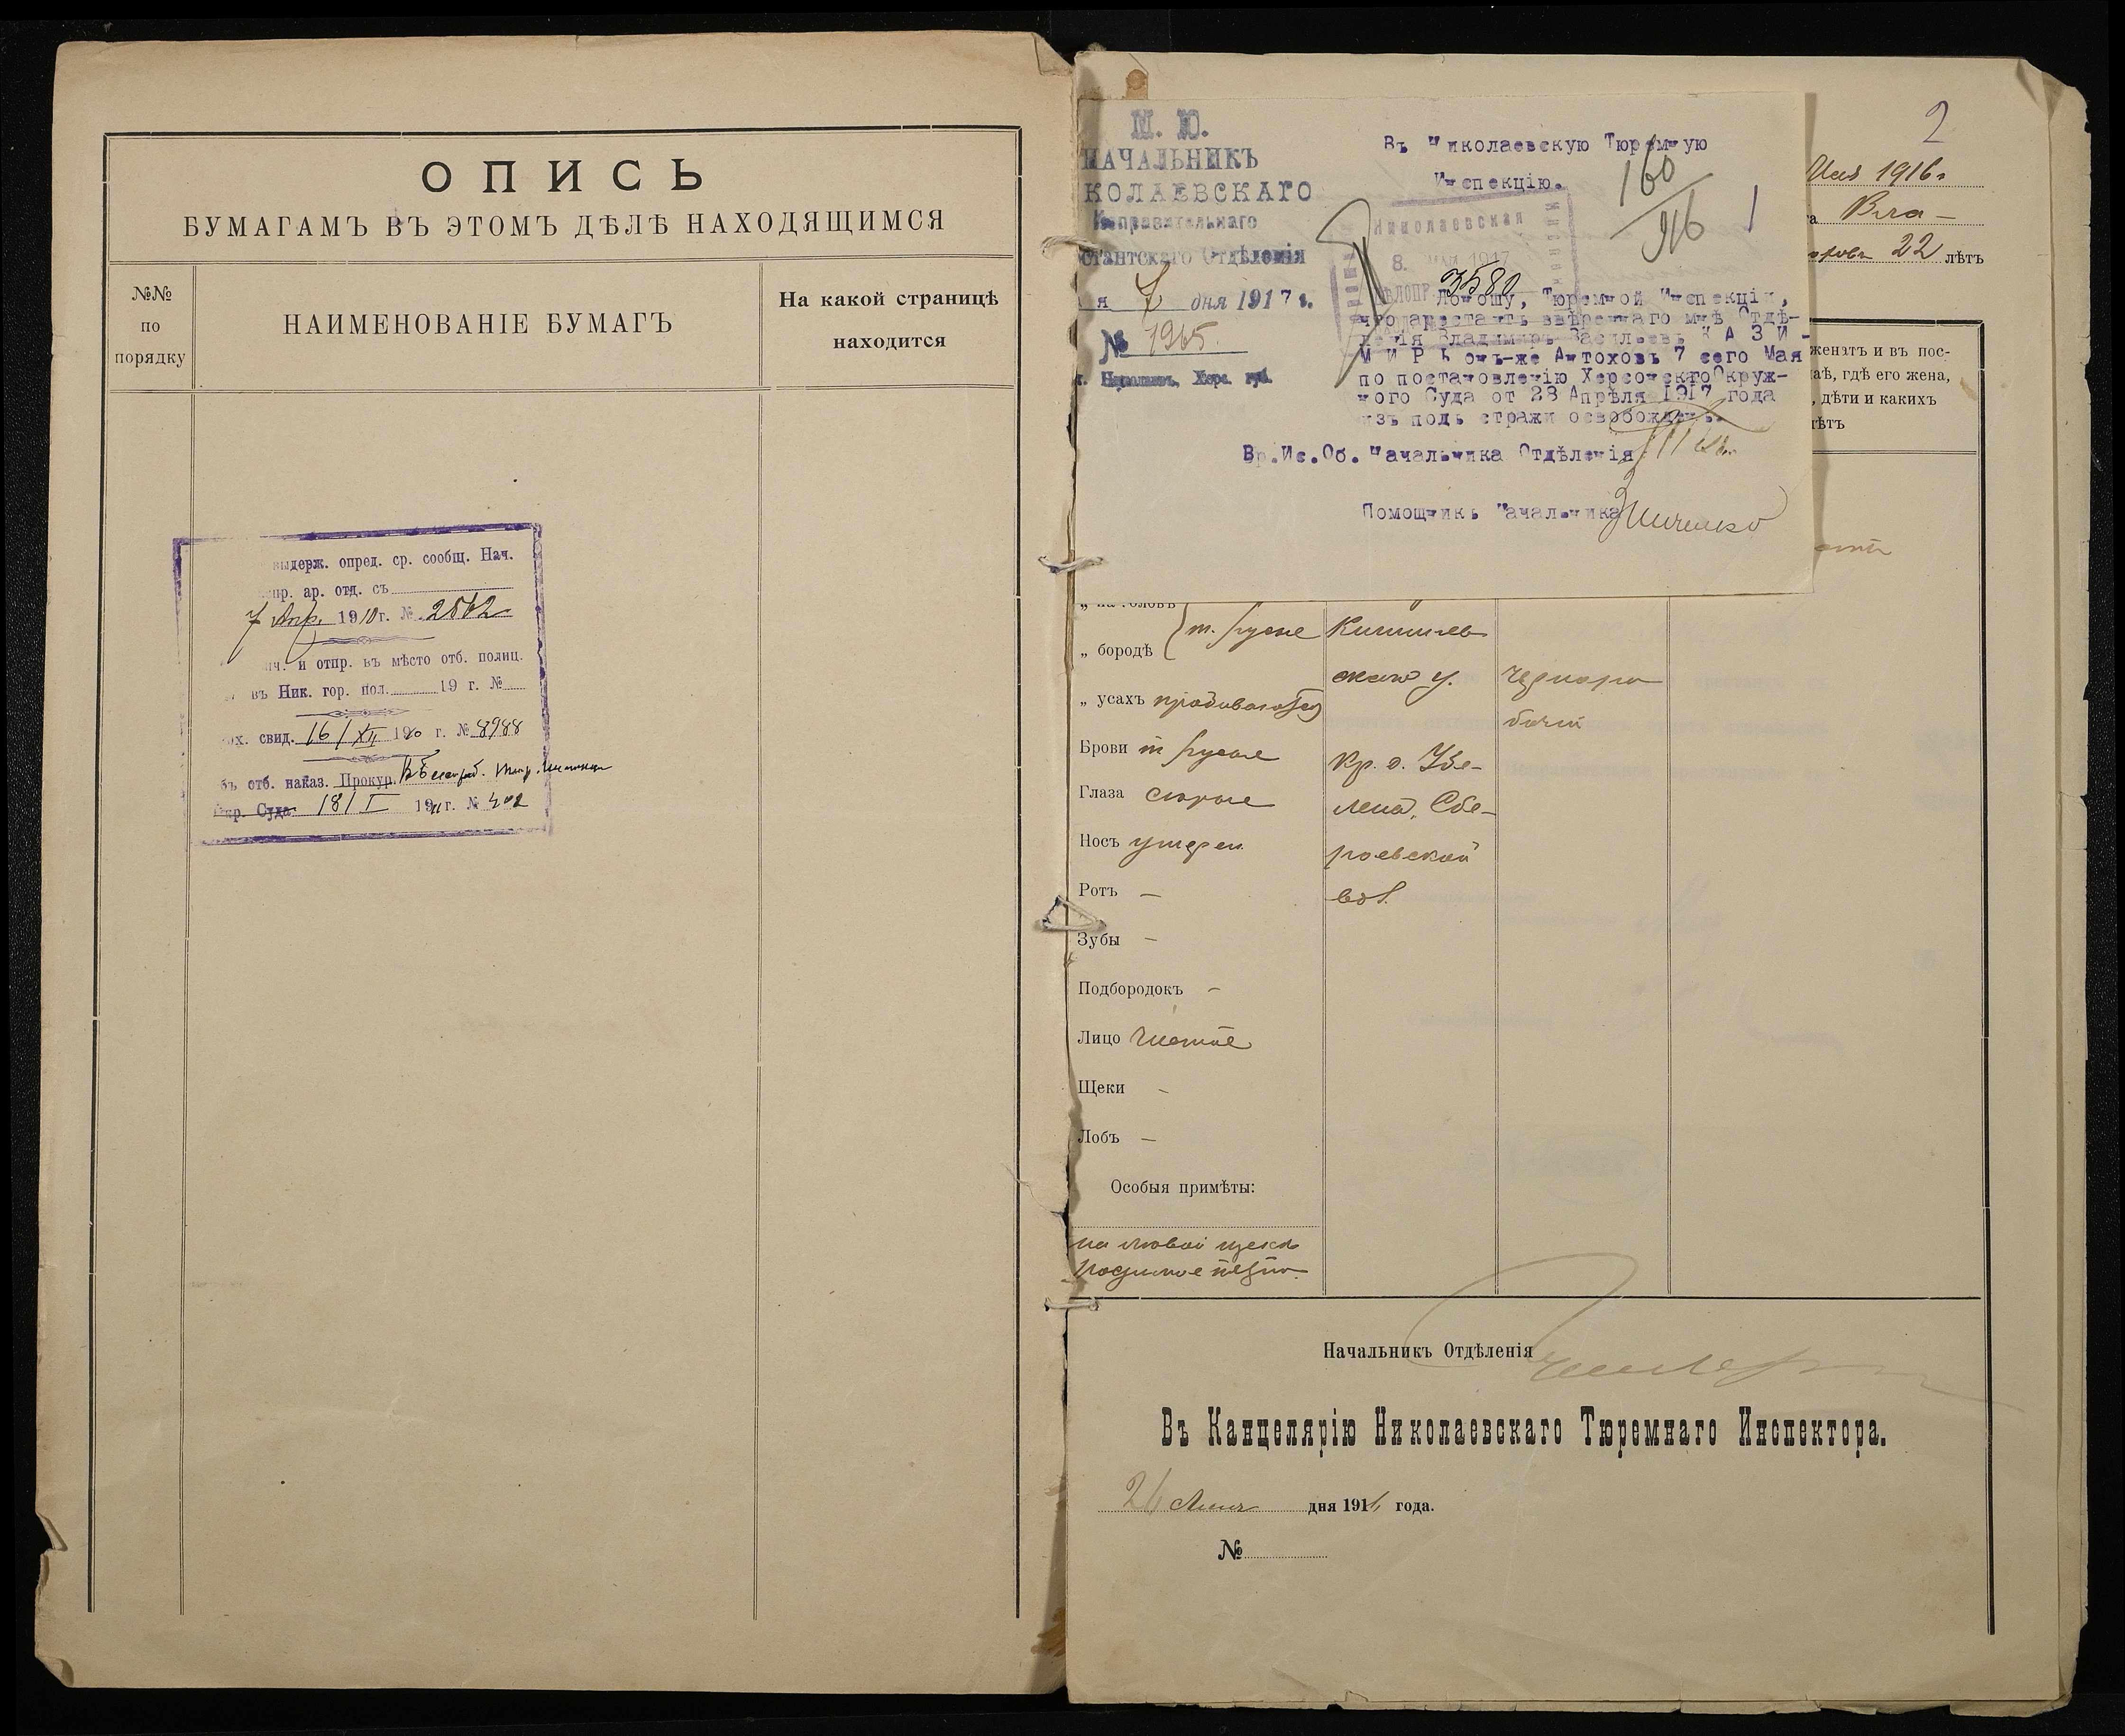 ОПИСЬ
БУМАГАМЪ ВЪ ЭТОМЪ ДѢЛѢ НАХОДЯЩИМСЯ
№№
по
порядку
НАИМЕНОВАНІЕ БУМАГЪ
На какой страницѣ
находится
выдерж. опред. ср. сообщ. Нач.
пр. ар. отд. съ
7 Апр. 1910 г. № 2562
и отпр. въ мѣсто отб. полиц.
въ Ник. гор. пол. 19 г. №
свид. 16/XII 1910 г. № 8988
отб. наказ. Прокур.
Окр. Суда 18/I 1911 г. № 402
2
М. Ю.
НАЧАЛЬНИКЪ
КОЛАЕВСКАГО
Исправительнаго
стантскаго Отдѣленія
я 7 дня 1917 г.
№ 1965.
г. Николаевъ, Херс. губ.
Въ Николаевскую Тюремную
Инспекцію.
160
916
1
Николаевская
8. МАЙ 1917
3580
Доношу, Тюремной Инспекціи,
что арестантъ ввѣреннаго мнѣ Отдѣ-
ленія Владимиръ Васильевъ КАЗИ-
МИРЪ онъ-же Антоховъ 7 сего Мая
по постановленію Херсонскаго Окруж-
ного Суда от 28 Апрѣля 1917 года
изъ подъ стражи освобожденъ.
Вр.Ис.Об. Начальника Отдѣленія
Помощникъ Начальника
Мая 1916 г
Вла-
22 лѣтъ
женатъ и въ пос-
аѣ, гдѣ его жена,
, дѣти и какихъ
лѣтъ
„ на головѣ
т. русые
„ бородѣ
„ усахъ пробиваются
Брови т русые
Глаза сѣрые
Носъ умѣрен.
Ротъ —
Зубы —
Подбородокъ —
Лицо чистое
Щеки —
Лобъ —
Особыя примѣты:
на лѣвой щекѣ
родимое пятно.
Кишинев
скаго у.
Кр. с.
вол.
чернора
бочій
Начальникъ Отдѣленія
Въ Канцелярію Николаевскаго Тюремнаго Инспектора.
дня 1916 года.
№